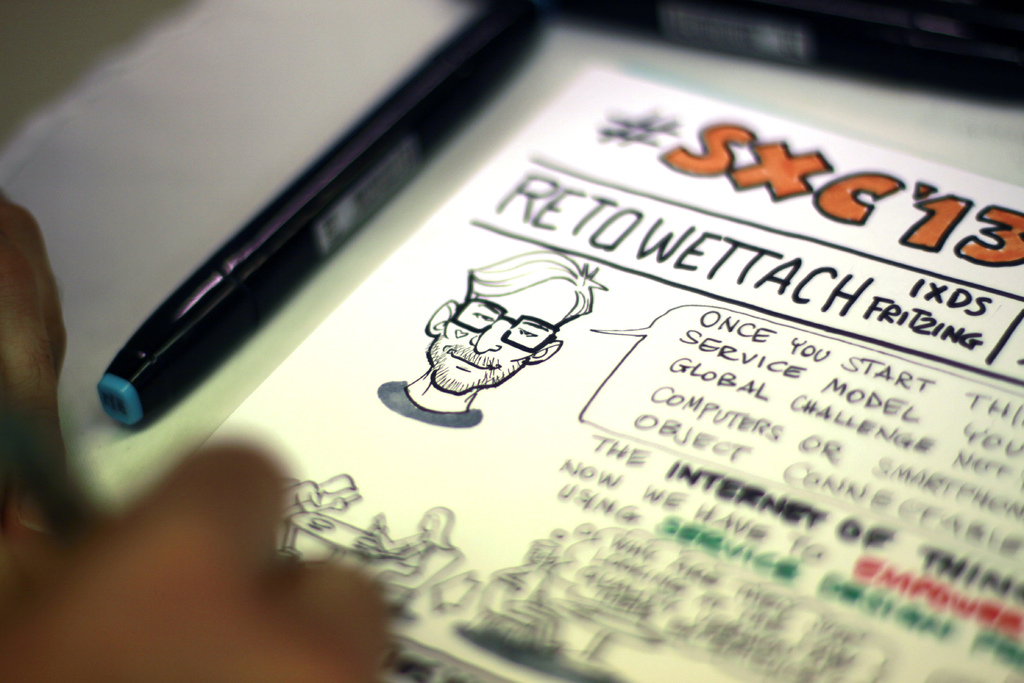 #SXC'13
RETO WETTACH
IXDS
FRITZING
ONCE YOU START THI
SERVICE MODEL YOU
GLOBAL CHALLENGE NOT
COMPUTERS OR SMARTPHON
OBJECT CONNECTABLE
THE INTERNET OF THIN
NOW WE HAVE TO EMPOWER
USING SERVICE DESIGN